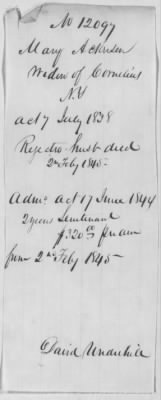 No 12097
Mary Ackerson
Widow of Cornelius
N.Y
act 7 July 1838
Rejected husb died
2nd Feby 1845
Adm. act 17 June 1844
2 years Lieutenant
$320 00 per ann
from 2nd Feby 1845
David Underhill